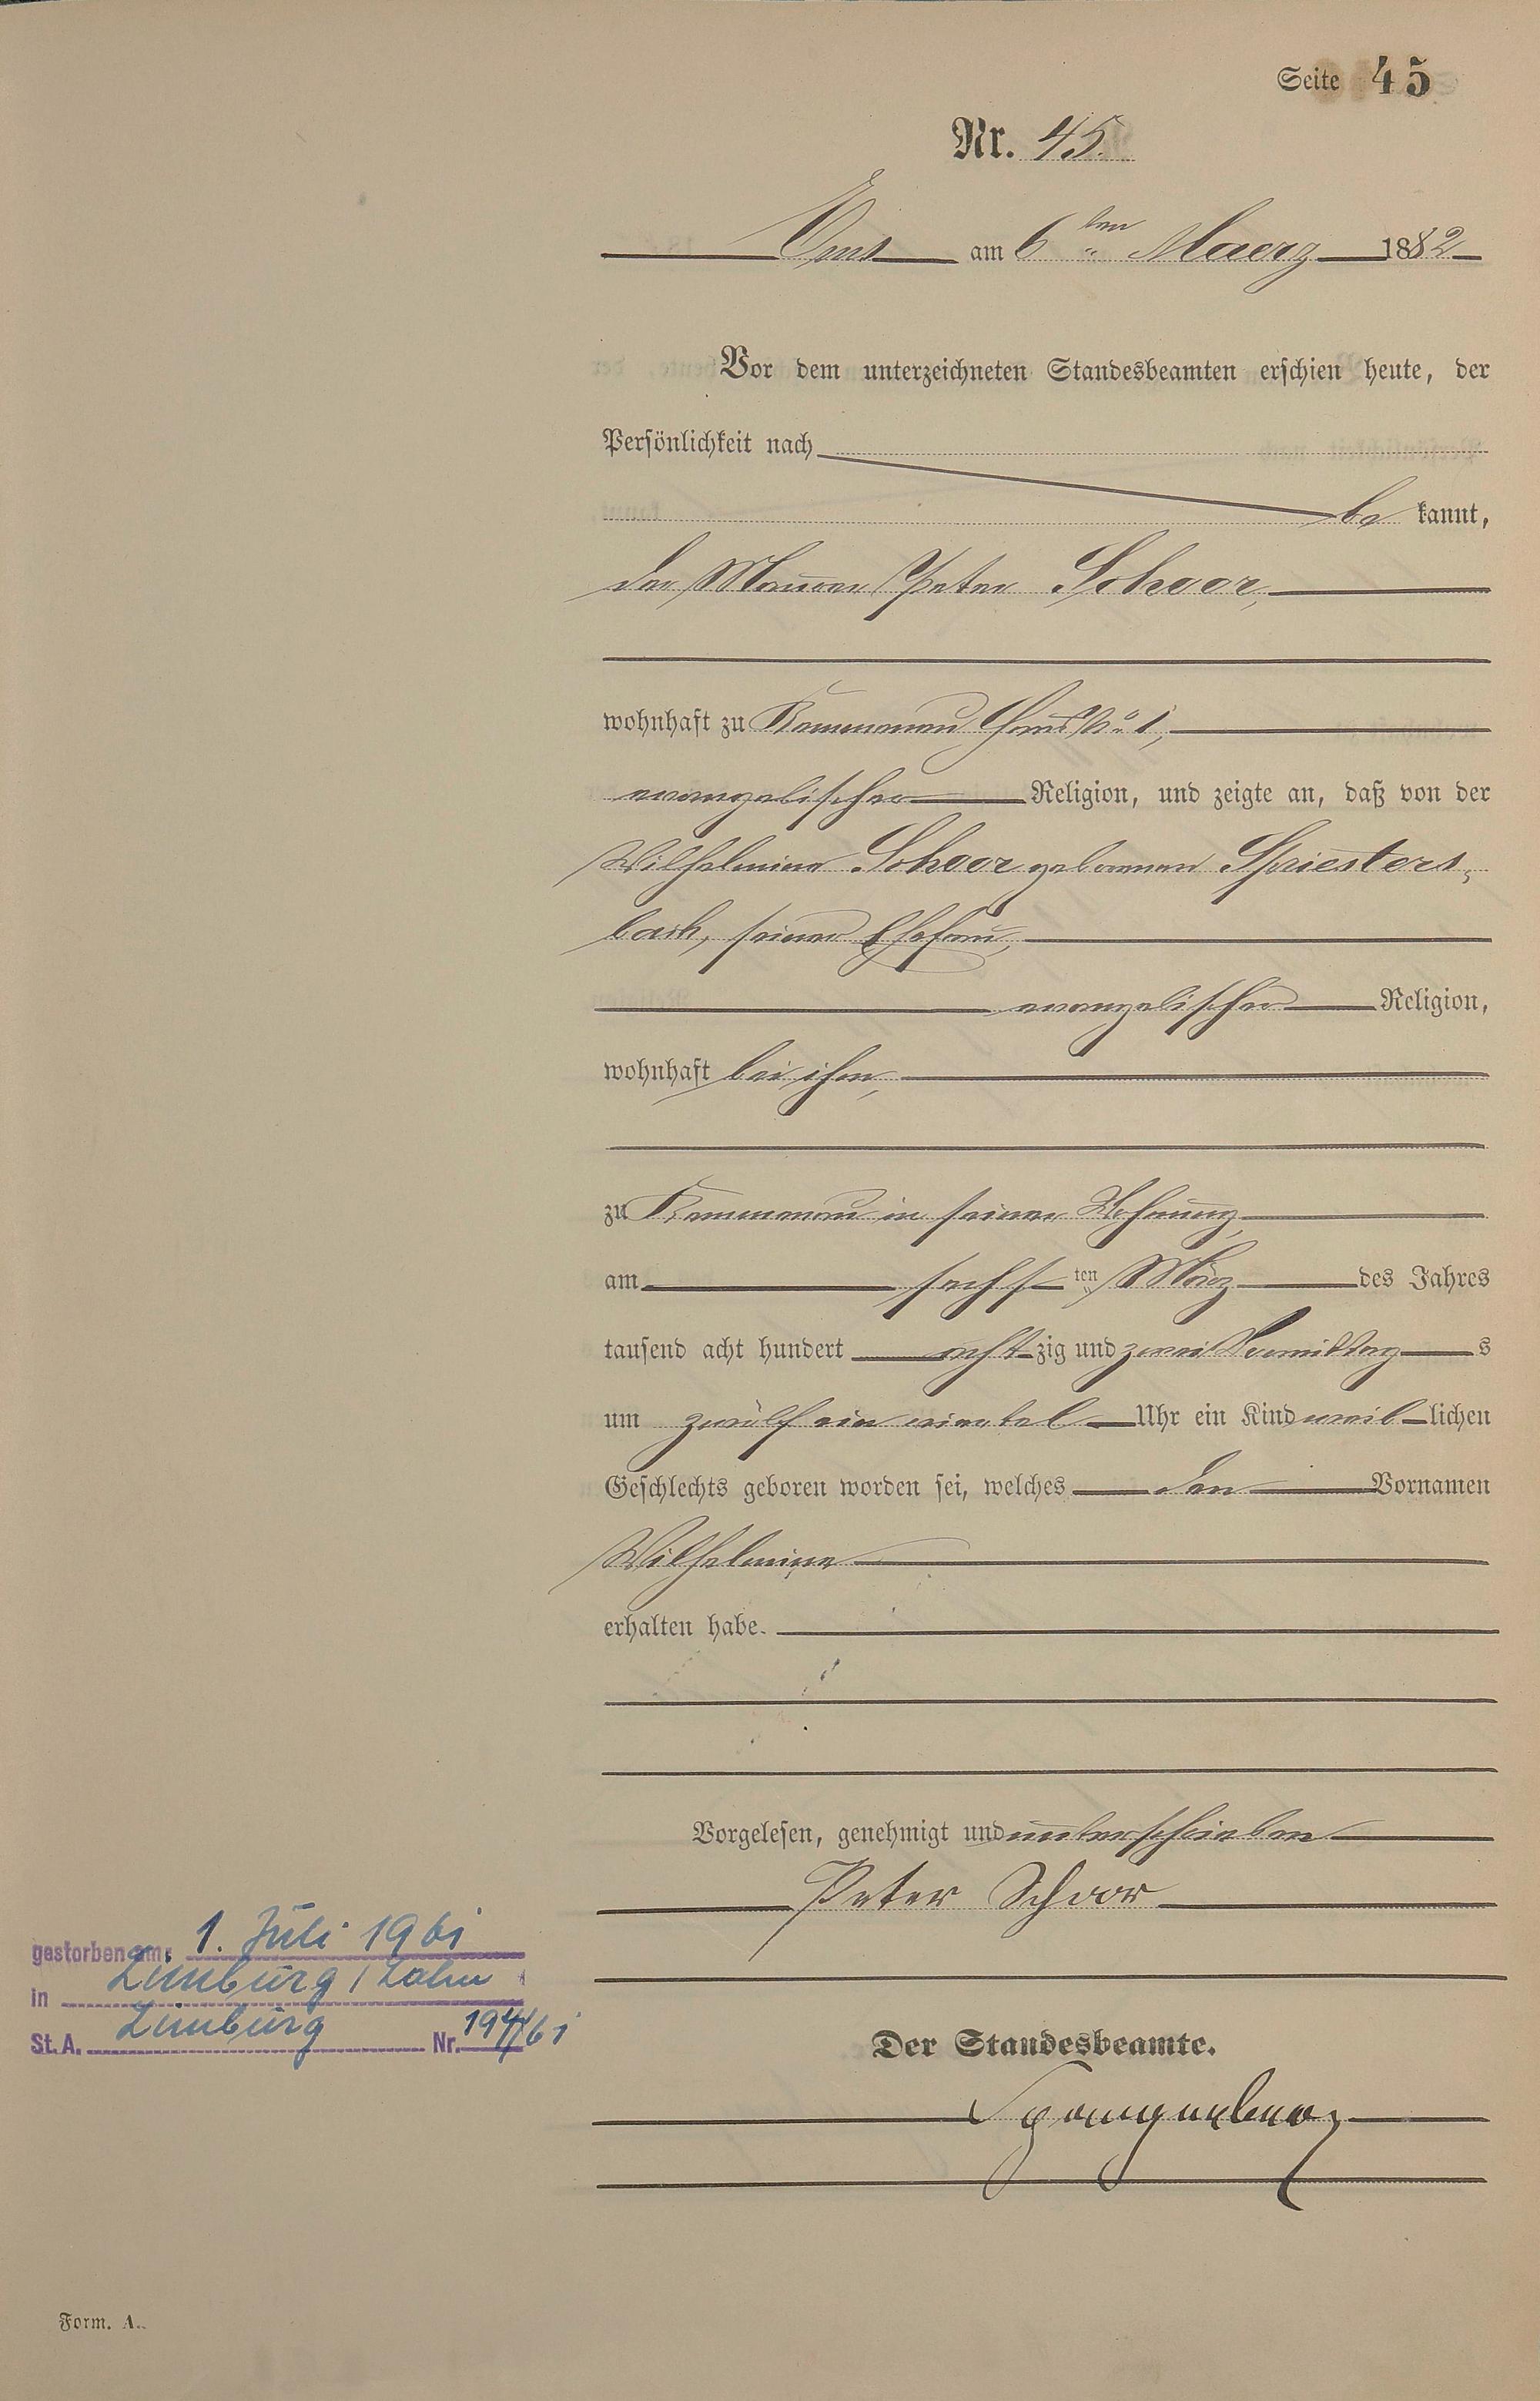 Seite 45
Nr. 45.
Ems am 6ten Maerz 1882
Vor dem unterzeichneten Standesbeamten erschien heute, der
Persönlichkeit nach
be kannt,
der Maurer Peter Schoor,
wohnhaft zu Kemmenau Haus No 1,
evangelischer Religion, und zeigte an, daß von der
Wilhelmine Schoor geborenen Spriesters-
bach, seiner Ehefrau,
evangelischer Religion,
wohnhaft bei ihm,
zu Kemmenau in seiner Wohnung,
am sechsten März des Jahres
tausend acht hundert achtzig und zwei Vormittags
um zwölf ein viertel Uhr ein Kind weiblichen
Geschlechts geboren worden sei, welches den Vornamen
Wilhelmine
erhalten habe.
Vorgelesen, genehmigt und unterschrieben
Peter Schoor
gestorben am: 1. Juli 1961
in Limburg / Lahn
St. A. Limburg Nr. 194/61
Der Standesbeamte.
Spangenberg
Form. A.